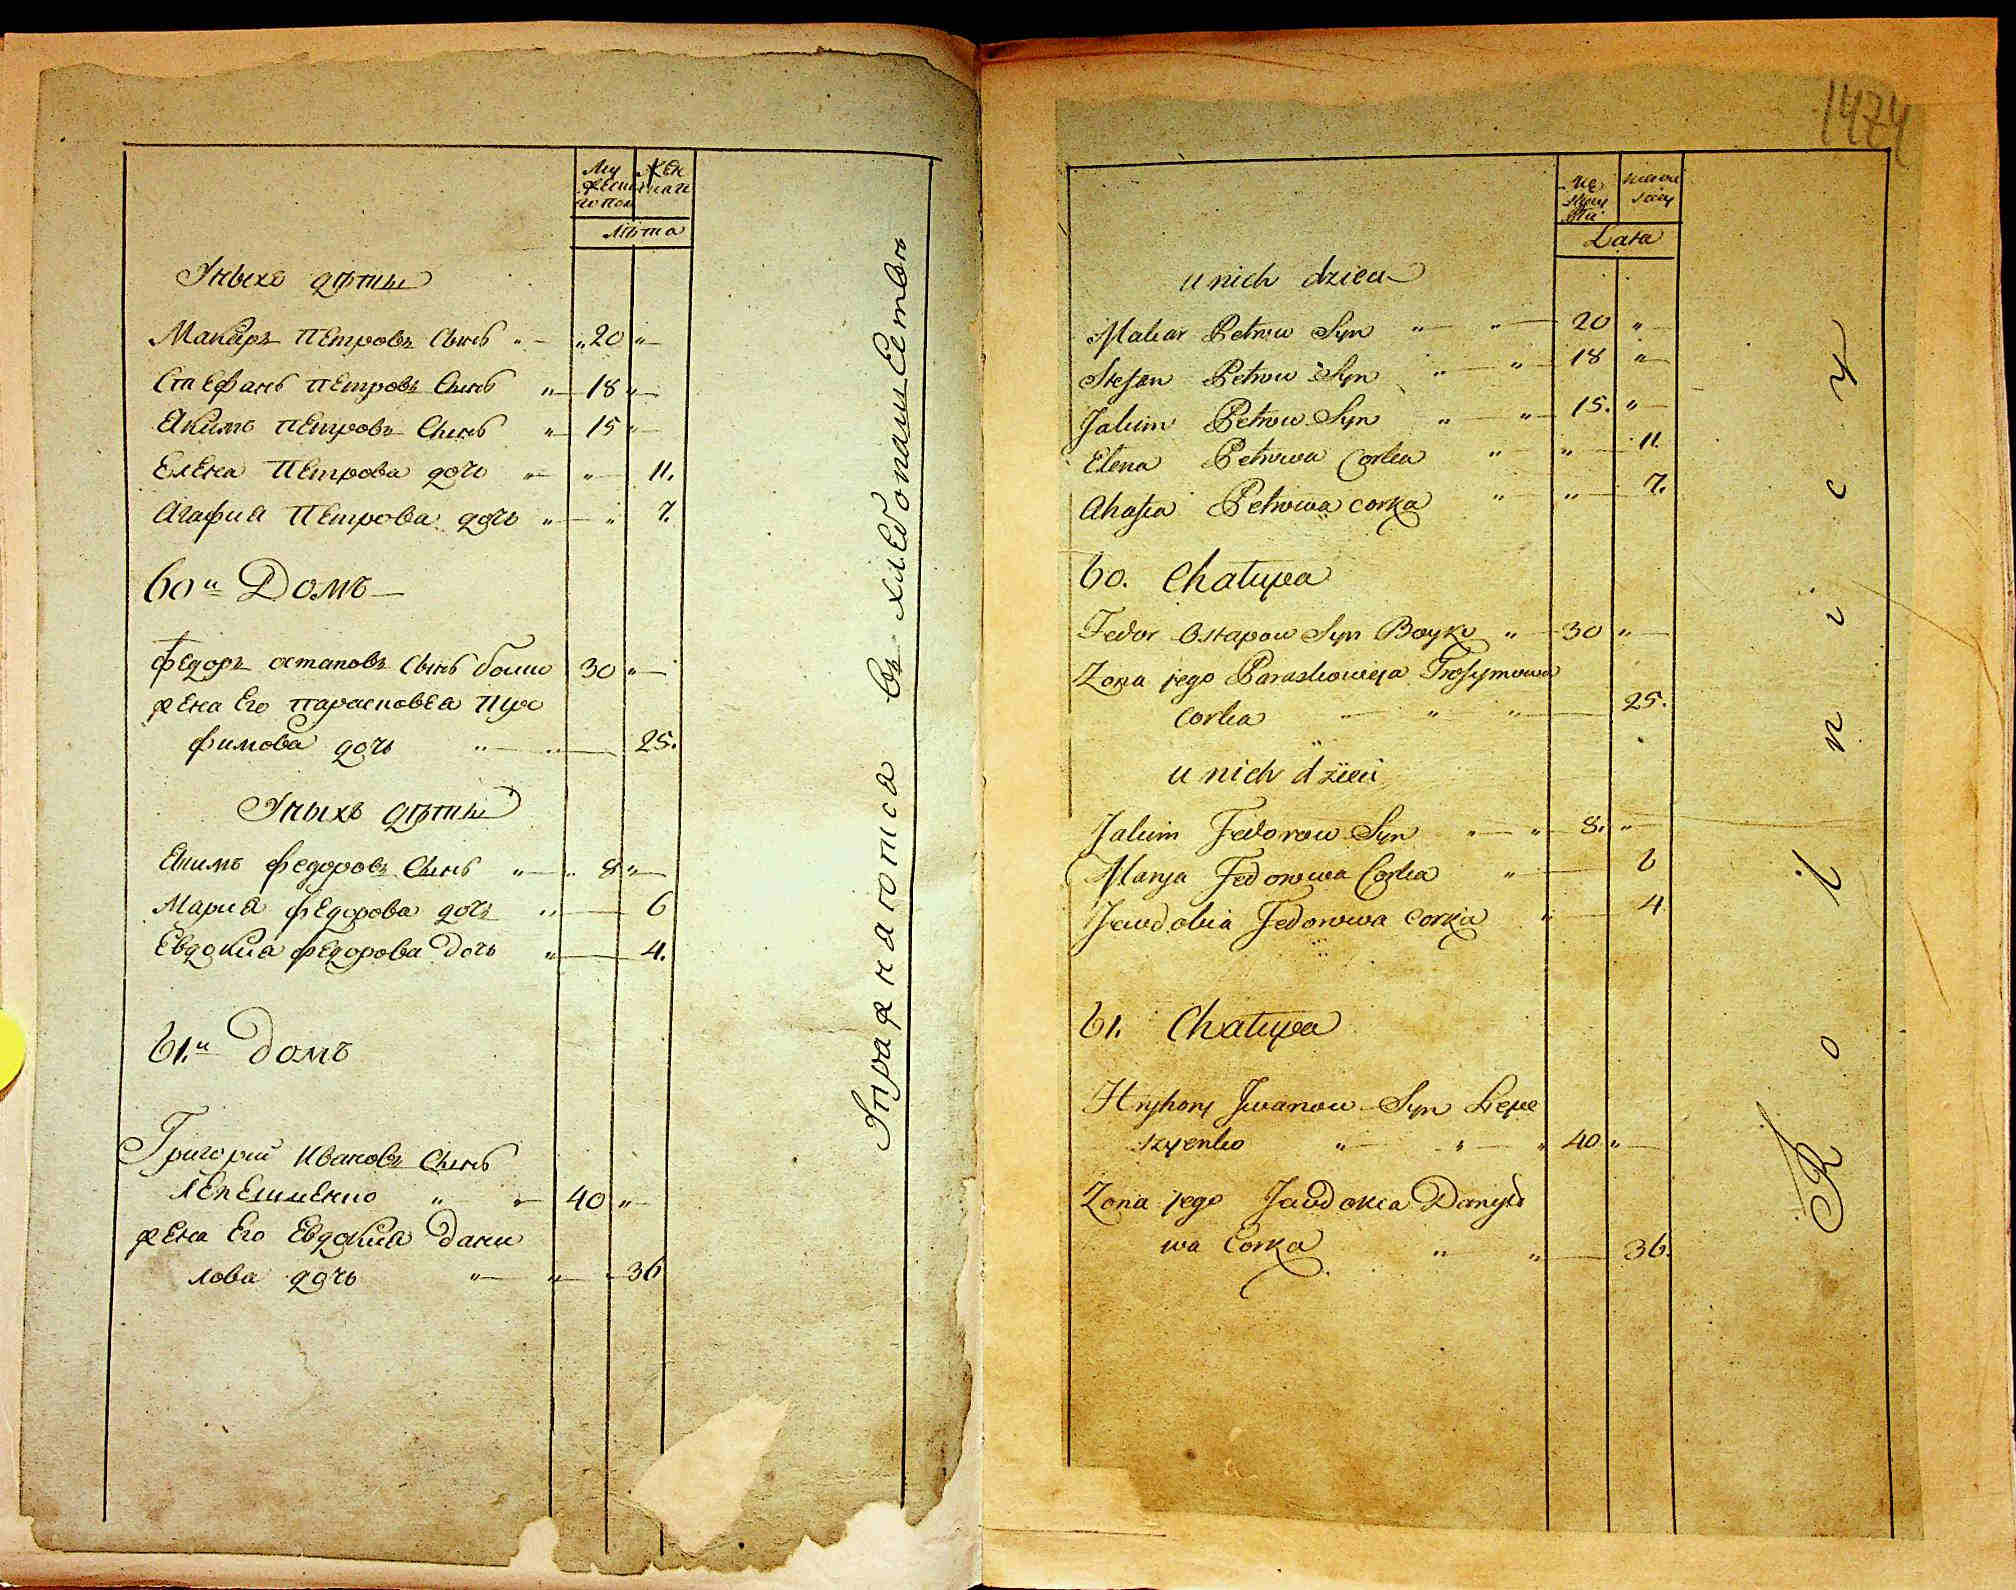 Му жеск го пол
Жен скаго
Лѣта
Уныхъ дѣти
Макаръ Петровъ Сынъ " 20 "
Стефанъ Петровъ Сынъ " 18 "
Акимъ Петровъ Сынъ " 15 "
Елена Петрова дочь " " 11.
Агафиа Петрова дочь " " 7.
60й Домъ
Федоръ Остаповъ Сынъ 30 "
жена Его Парасковеа Тро
фимова дочь " " 25.
Уныхъ дѣти
Акимъ Федоровъ Сынъ " " 8 "
Мариа Федорова дочь " 6
Евдокиа Федорова дочь " 4.
61.й домъ
Григорий Ивановъ Сынъ
Лепешченко " " 40 "
жена Его Евдокиа Дани
лова дочь " " " 36
Упражнаютса въ хлебопашествѣ
1474
Lata
u nich dzieci
Makar Petrow Syn " " 20 "
Stefan Petrow Syn " " 18 "
Jakim Petrow Syn " " 15. "
Elena Petrowa Corka " " 11
Ahafia Petrowa corka " " 7.
60. Chałupa
Fedor Ostapow Syn Boyko " 30 "
Zona jego Paraskowija Trofymowa
Corka " " 25.
u nich dzieci
Jakim Fedorow Syn " " 8. "
Marya Fedorowa Corka " 6
Jewdokia Fedorowa corka " 4
61. Chałupa
Hryhory Jwanow Syn Lepe
szyenko " " " 40 "
Zona jego Jewdokia Danyło
wa Corka " " 36.
Rolnicy